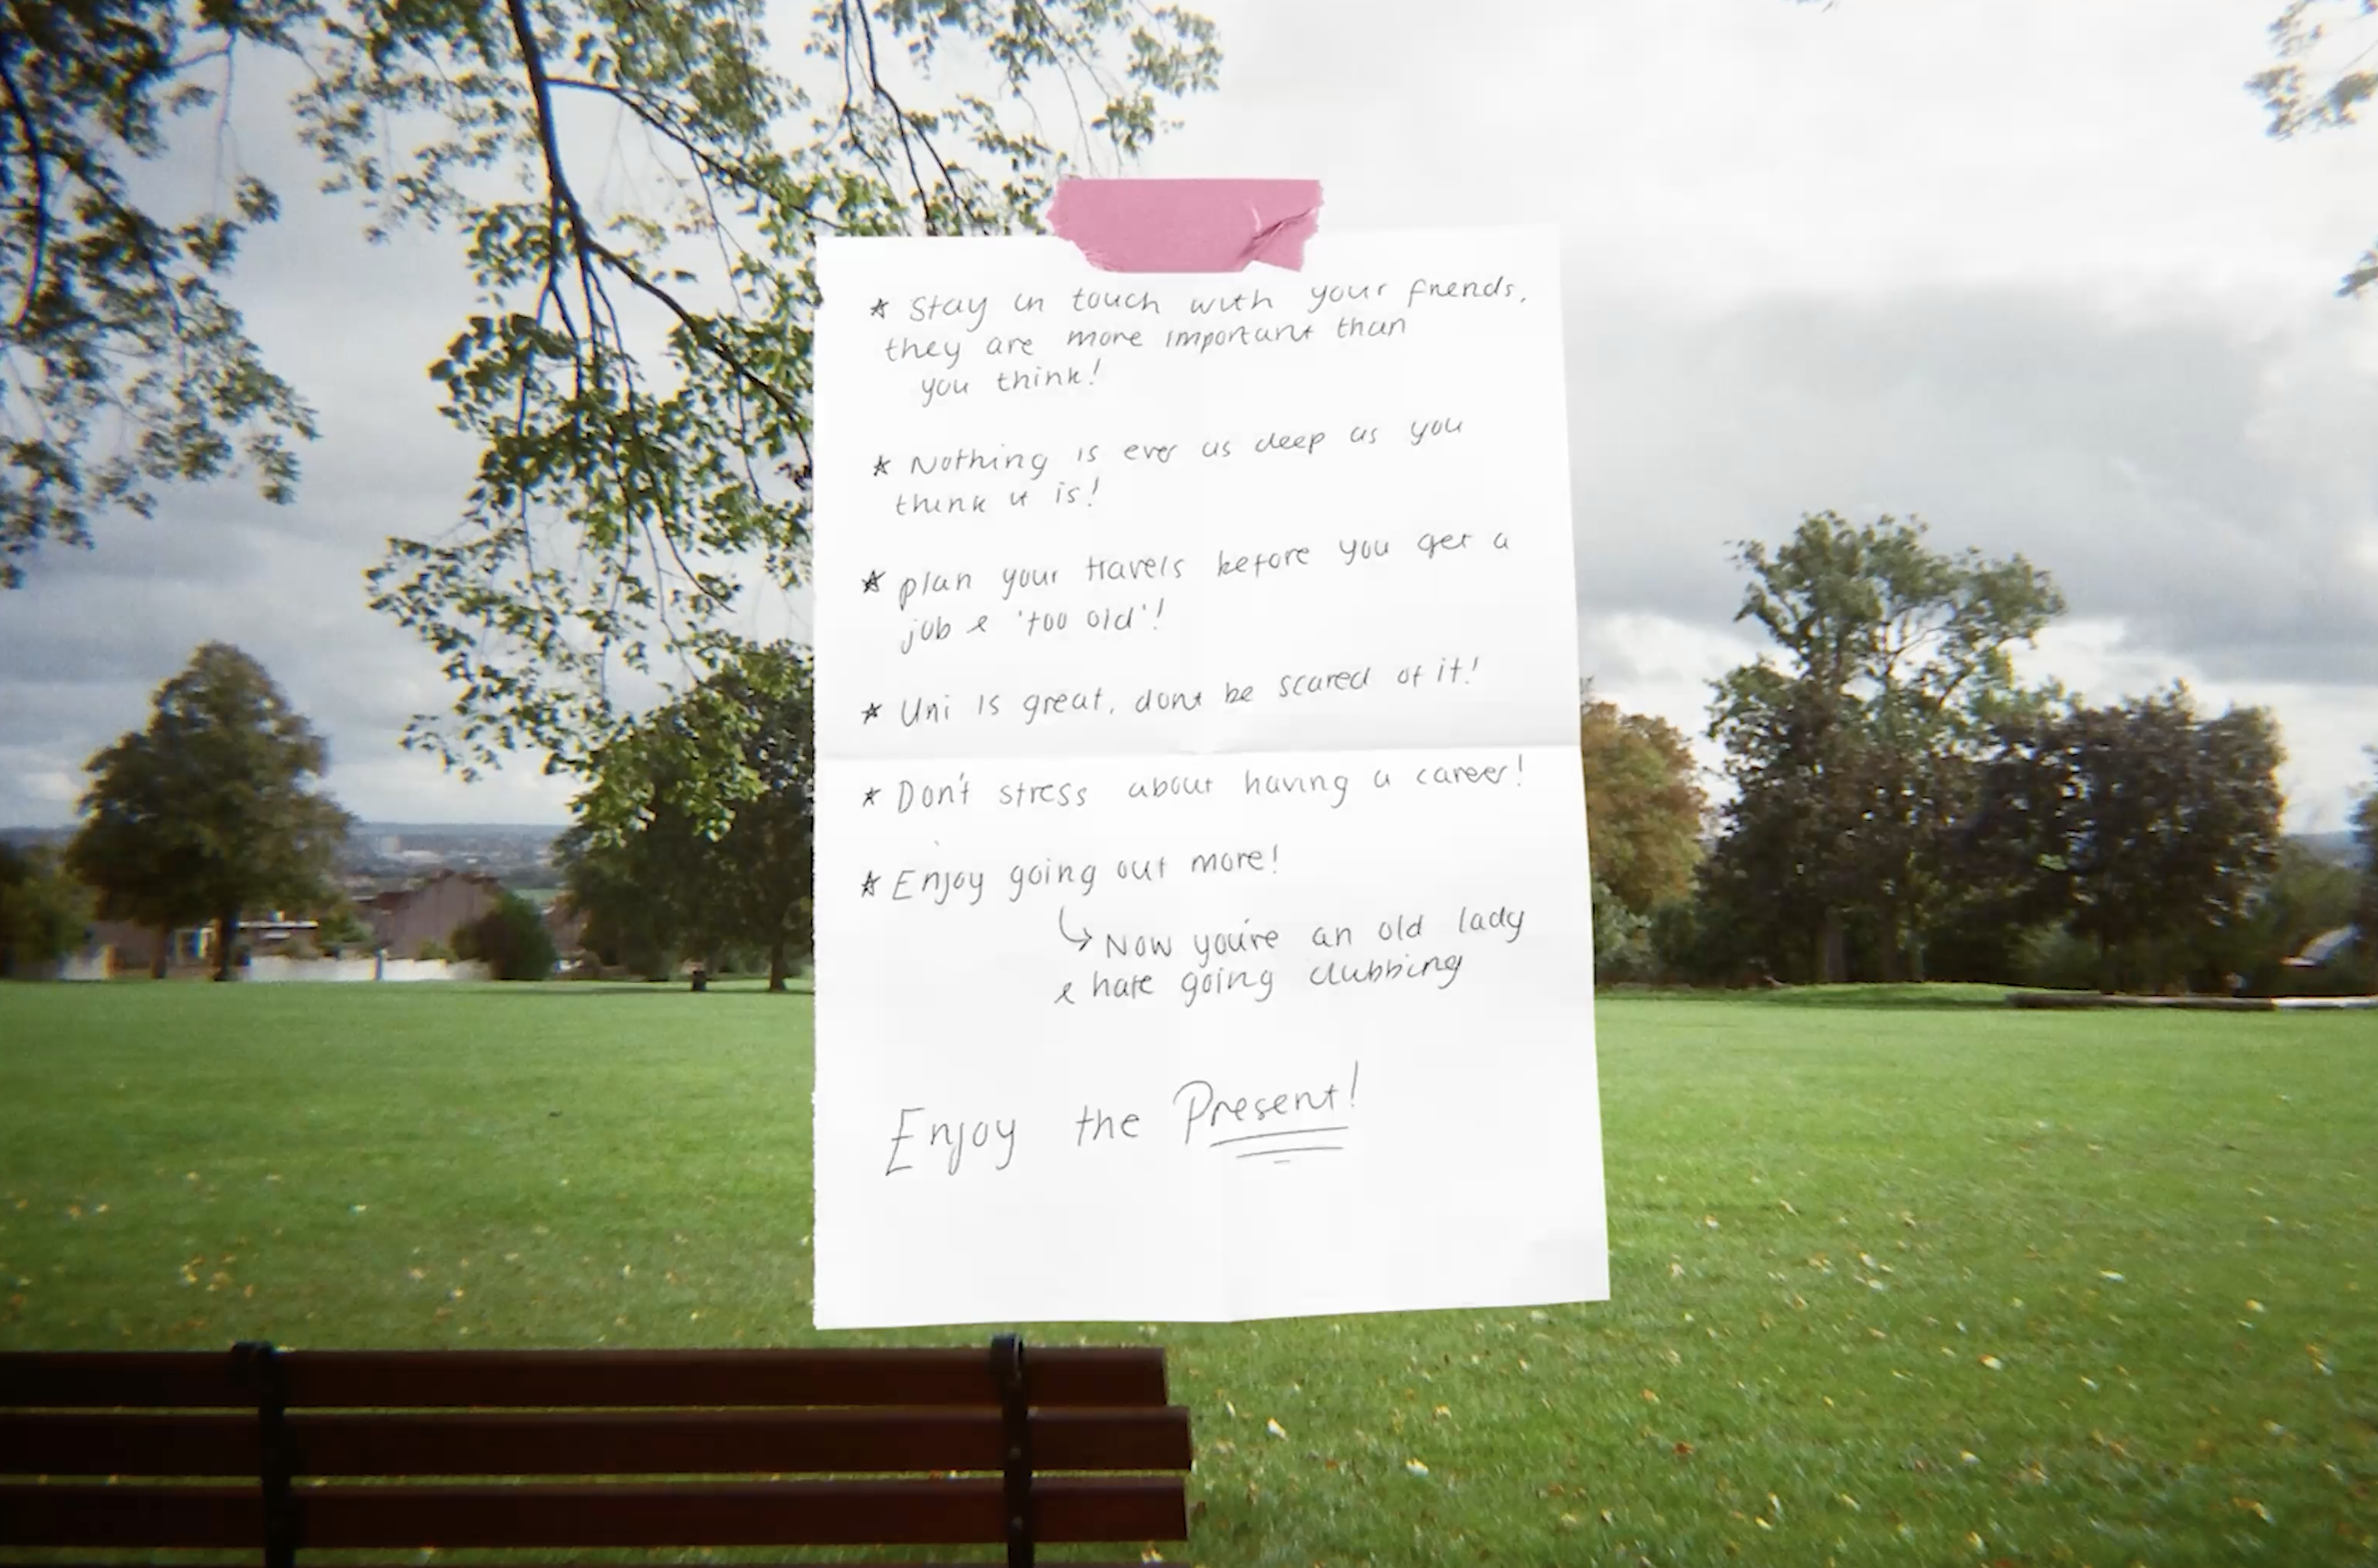 * Stay in touch with your friends,
they are more important than
you think!
* Nothing is ever as deep as you
think it is!
* plan your travels before you get a
job & 'too old'!
* Uni is great, dont be scared of it!
* Don't stress about having a career!
* Enjoy going out more!
↳ Now you're an old lady
& hate going clubbing
Enjoy the Present!